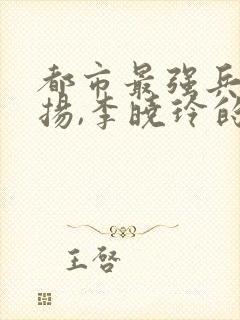 都市最强兵
揚,李曉玲的
王啓